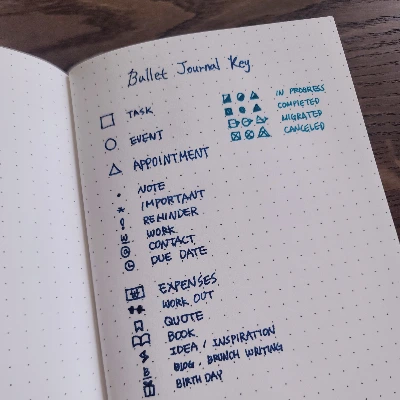 Bullet Journal Key
TASK
EVENT
APPOINTMENT
IN PROGRESS
COMPLETED
MIGRATED
CANCELED
• NOTE
* IMPORTANT
! REMINDER
W WORK
@ CONTACT
DUE DATE
EXPENSES
WORK OUT
QUOTE
BOOK
IDEA / INSPIRATION
B BLOG, BRUNCH WRITING
BIRTHDAY